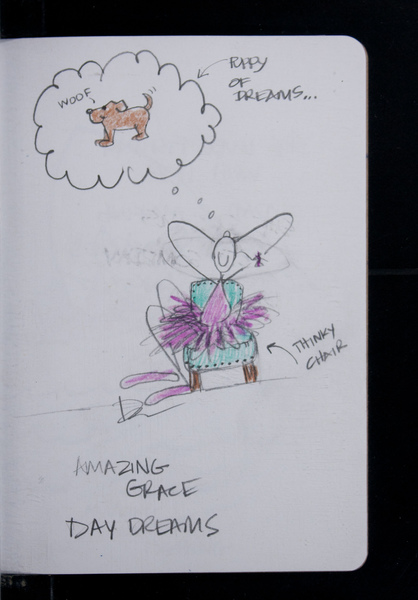 WOOF
PUPPY
OF
DREAMS...
THINKY
CHAIR
AMAZING
GRACE
DAY DREAMS